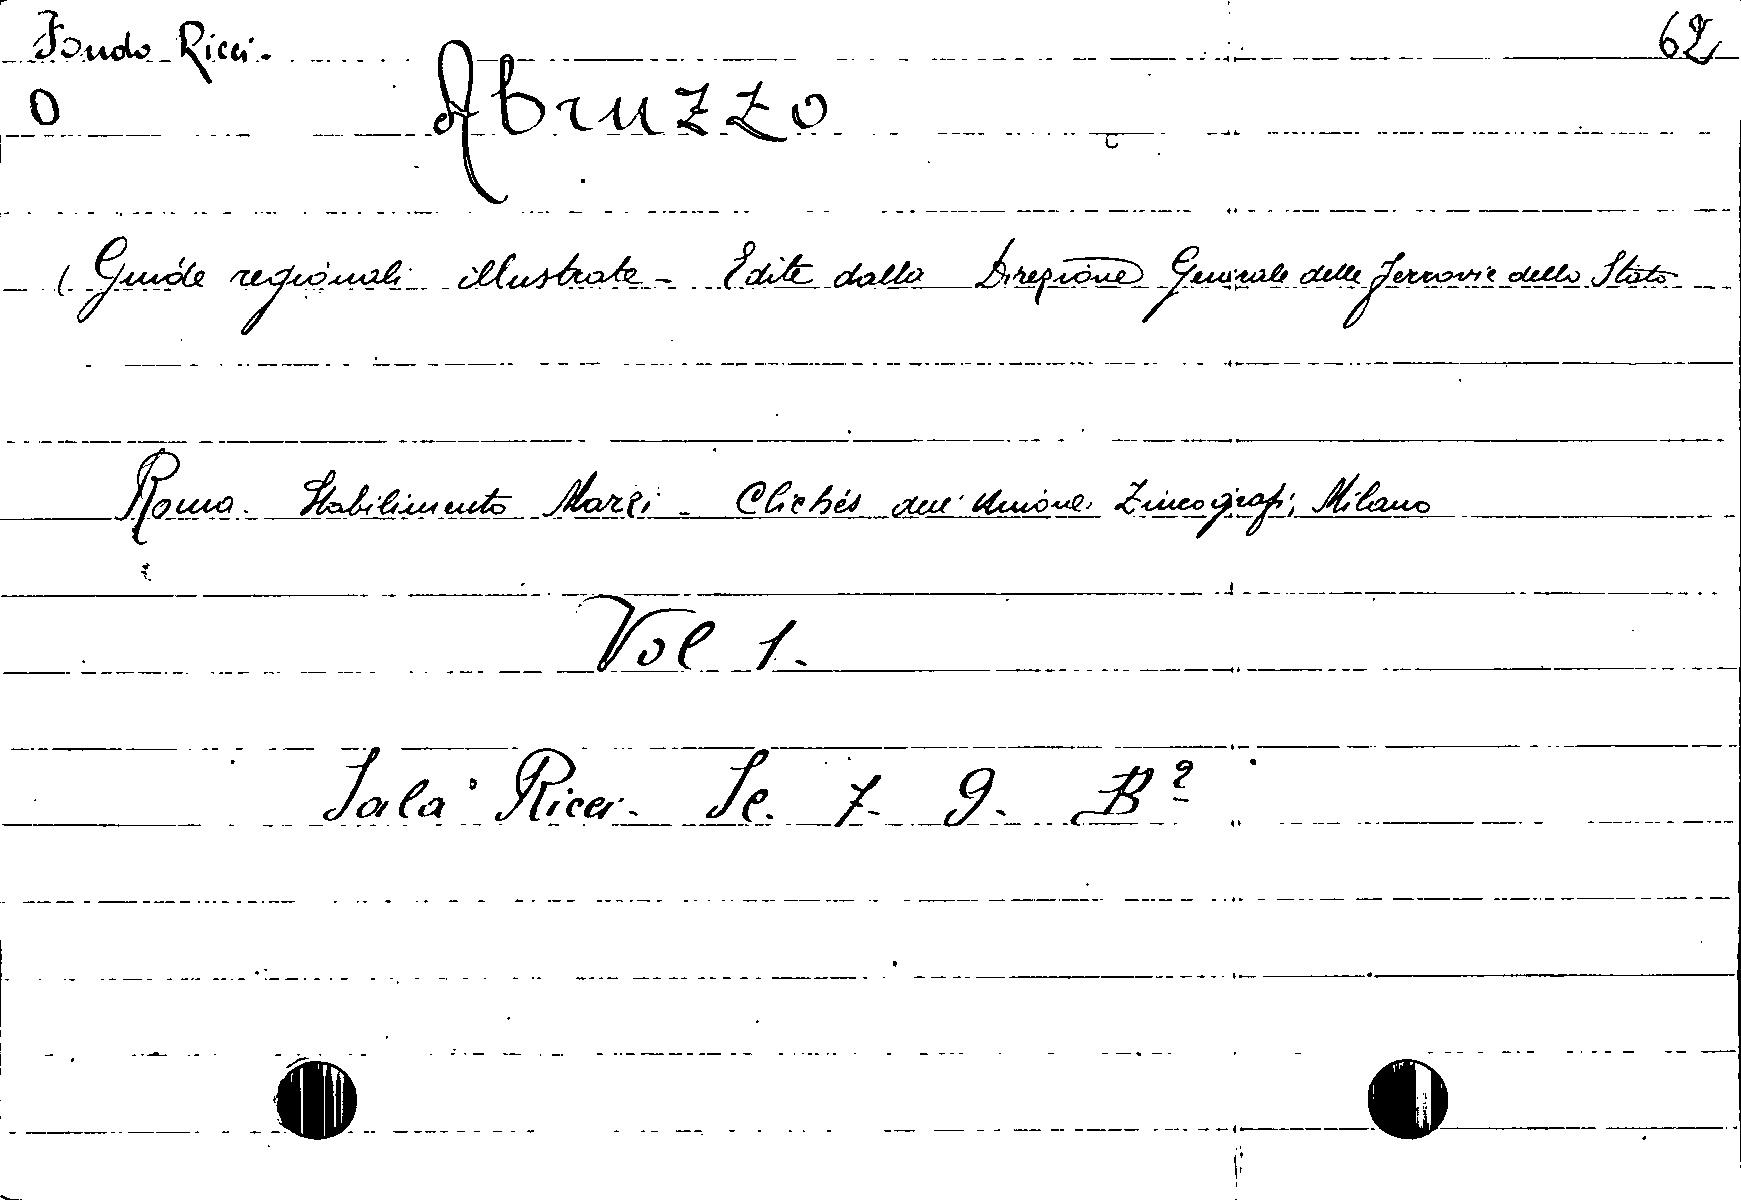 Fondo Ricci. 62
O Abruzzo
( Guide regionali illustrate - Edite dalla Direzione Generale delle Ferrovie dello Stato
Roma. Stabilimento Marzi - Clichés dell'Unione Zincografi, Milano
Vol 1.
Sala Ricci. Sc. 7. 9. B 2